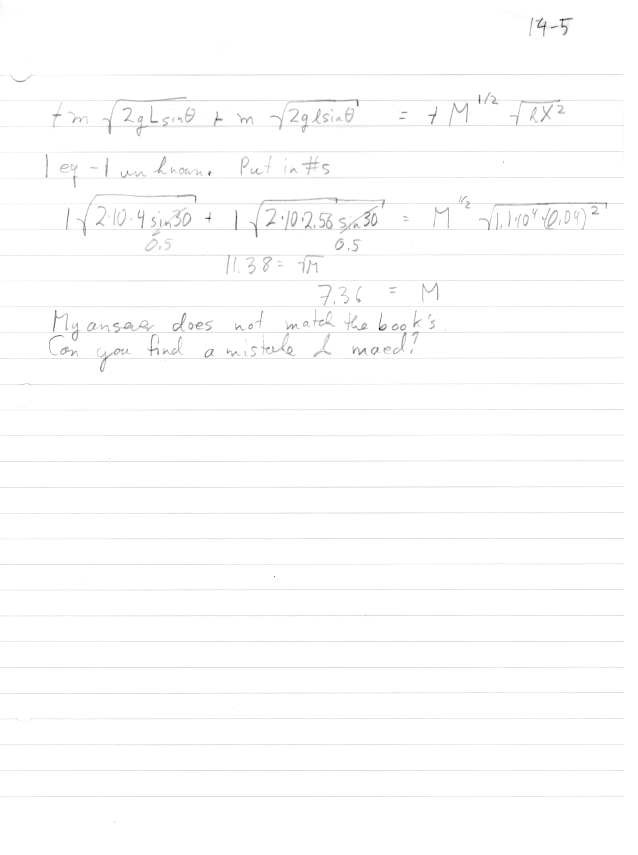 14-5
+m √2gLsinθ + m √2glsinθ = + M^1/2 √kX²
1 eq - 1 unknown. Put in #s
1√2·10·4 sin30 + 1 √2·10·2.56 sin30 = M^1/2 √1.1·10⁴ (0.04)²
0.5 0.5
11.38 = √M
7.36 = M
My answer does not match the book's.
Can you find a mistake I maed?